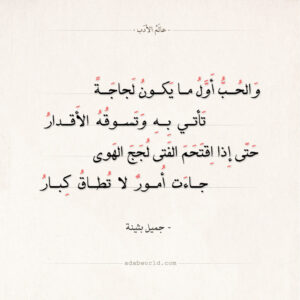 · عالم الأدب ·
وَالحُبُّ أَوَّلُ ما يَكونُ لَجاجَةً
تَأتي بِهِ وَتَسوقُهُ الأَقدارُ
حَتّى إِذا اِقتَحَمَ الفَتى لُجَجَ الهَوى
جاءَت أُمورٌ لا تُطاقُ كِبارُ
- جميل بثينة
adabworld.com